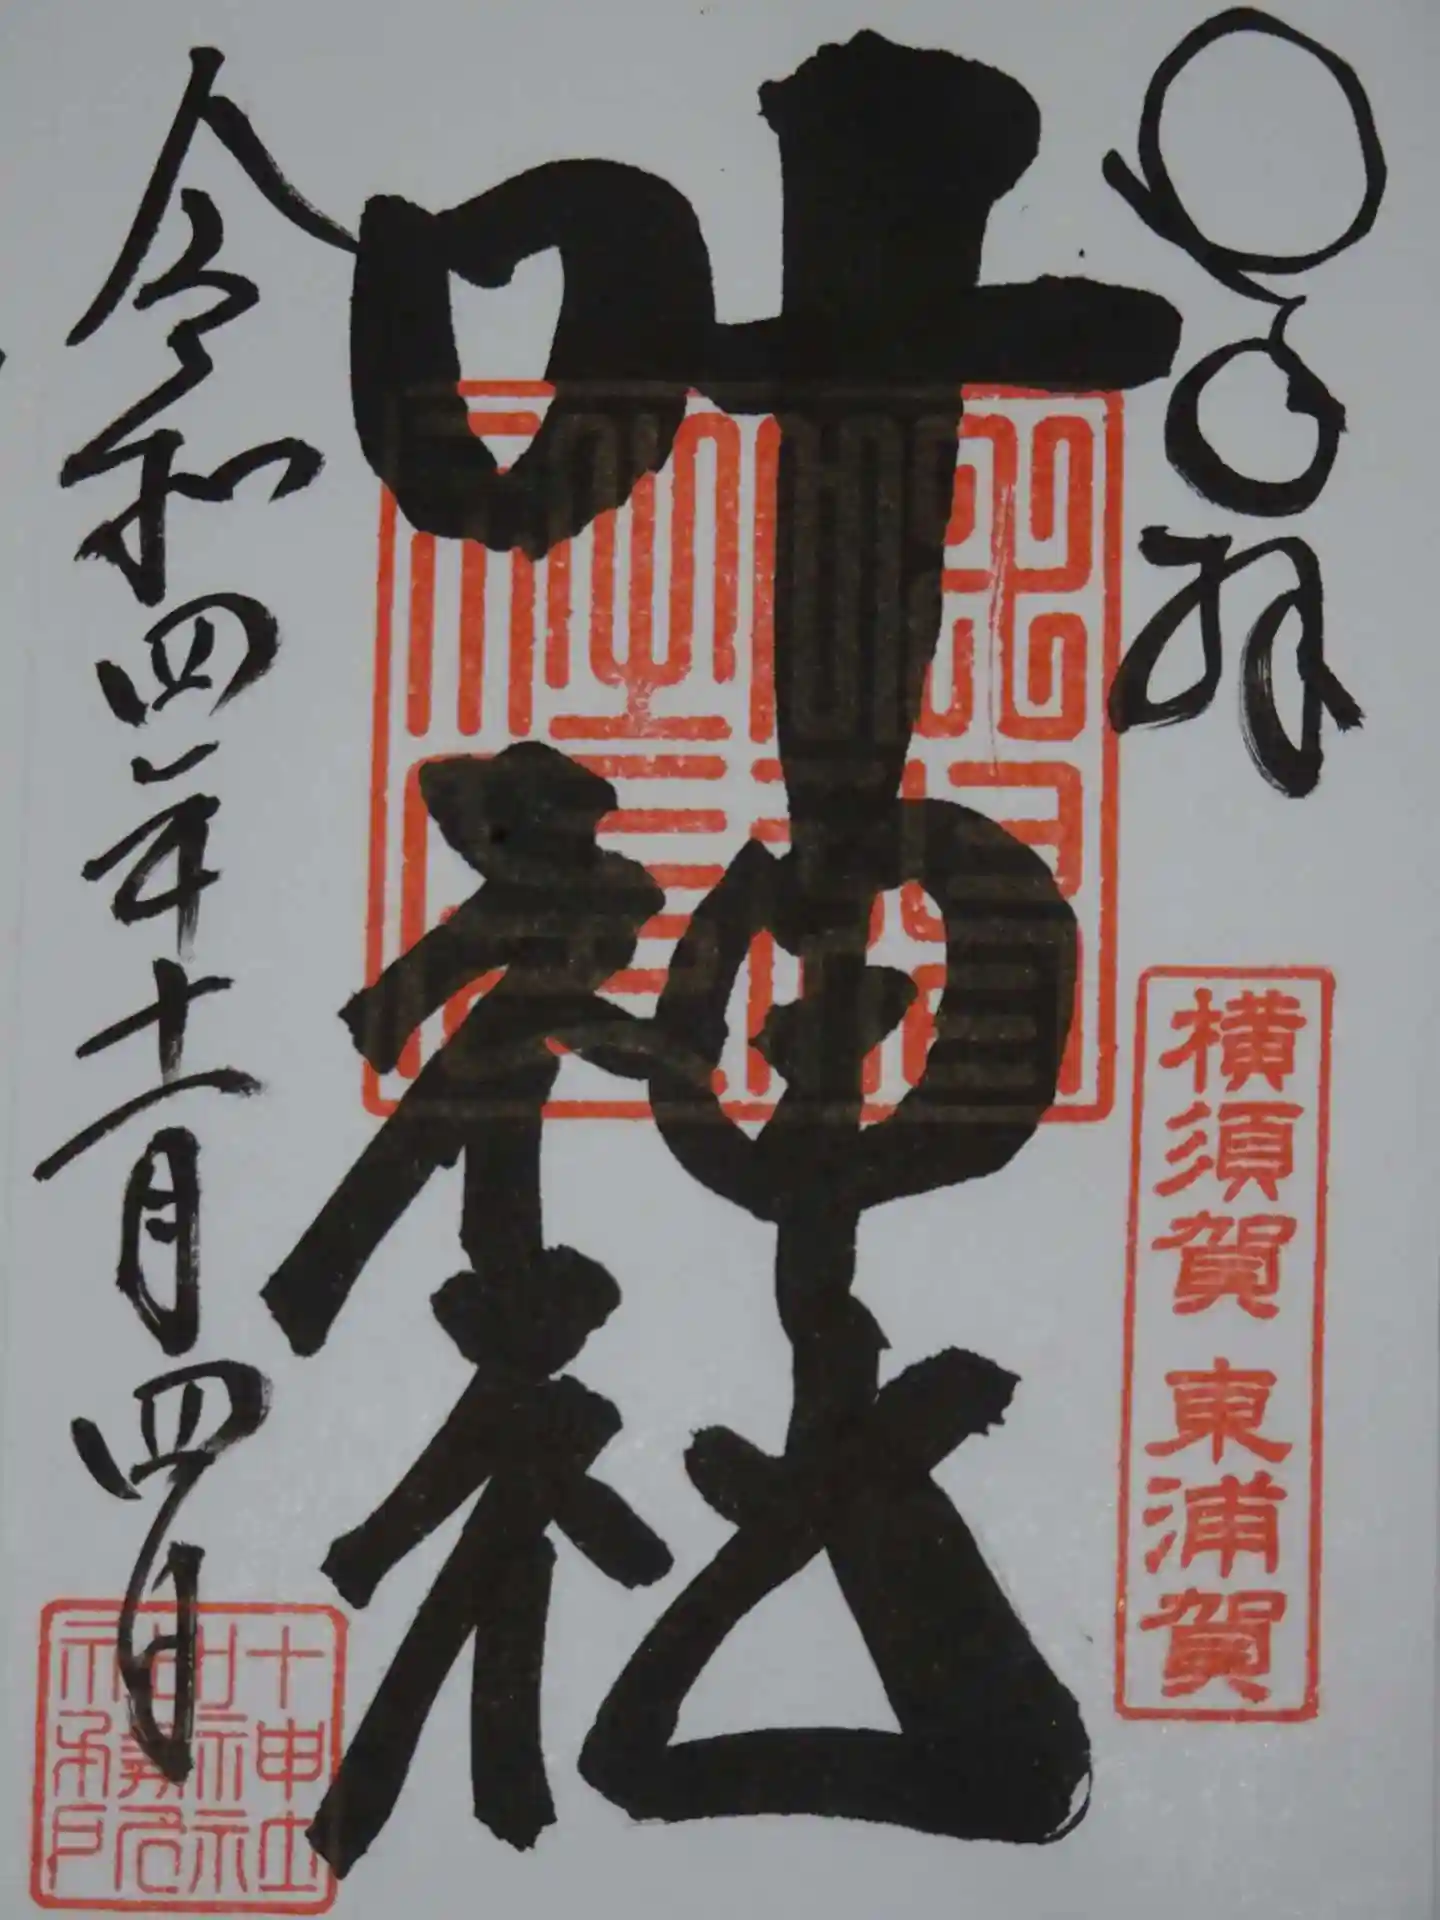 奉拝
横須賀 東浦賀
叶神社
令和四年十一月四日
叶神社
務所